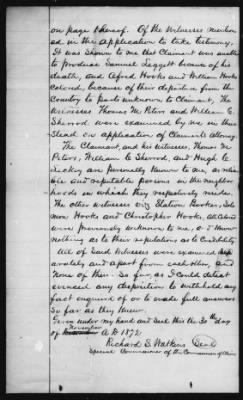 on page 1 hereof. Of the Witnesses mention
ed in the application to take testimony,
It was shown to me that Claimant was unable
to produce Samuel Leggett because of his
death, and Alfred Hooks and William Hooks
Colored, because of their departure from the
Country to parts unknown to Claimant, The
Witnesses Thomas M. Peters and William E.
Sherrod, were examined by me in their
Stead on application of Claimants attorney.
The Claimant, and his witnesses, Thomas M.
Peters, William E. Sherrod, and Hugh C.
are personally known to me, as relia
ble and reputable persons in the neighbor
hoods in which they respectively reside.
The other witnesses viz Station Booker, Solo
mon Hooks and Christopher Hooks, all Colored
were previously unknown to me, & I know
nothing as to their reputations as to Credibility
All of Said Witnesses were examined sep
arately and apart from each other, and
None of them So far, as I could detect
evinced any disposition to withhold any
fact enquired of or to make full answers
So far as they knew.
Given under my hand and Seal this the 30th day
of November A.D 1872
Richard S. Watkins Seal
Special Commissioner of the Commissioners of Claims